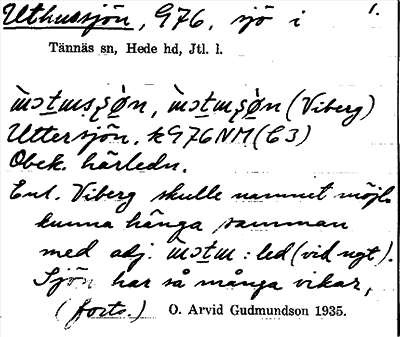 Uthussjön, G76, sjö i 1.
Tännäs sn, Hede hd, Jtl. l.
(Viberg)
Uttersjön. k G76 NM (C3)
Obek. härledn.
Enl. Viberg skulle namnet möjl.
kunna hänga samman
med adj. : led (vid ngt).
Sjön har så många vikar,
(forts.) O. Arvid Gudmundson 1935.